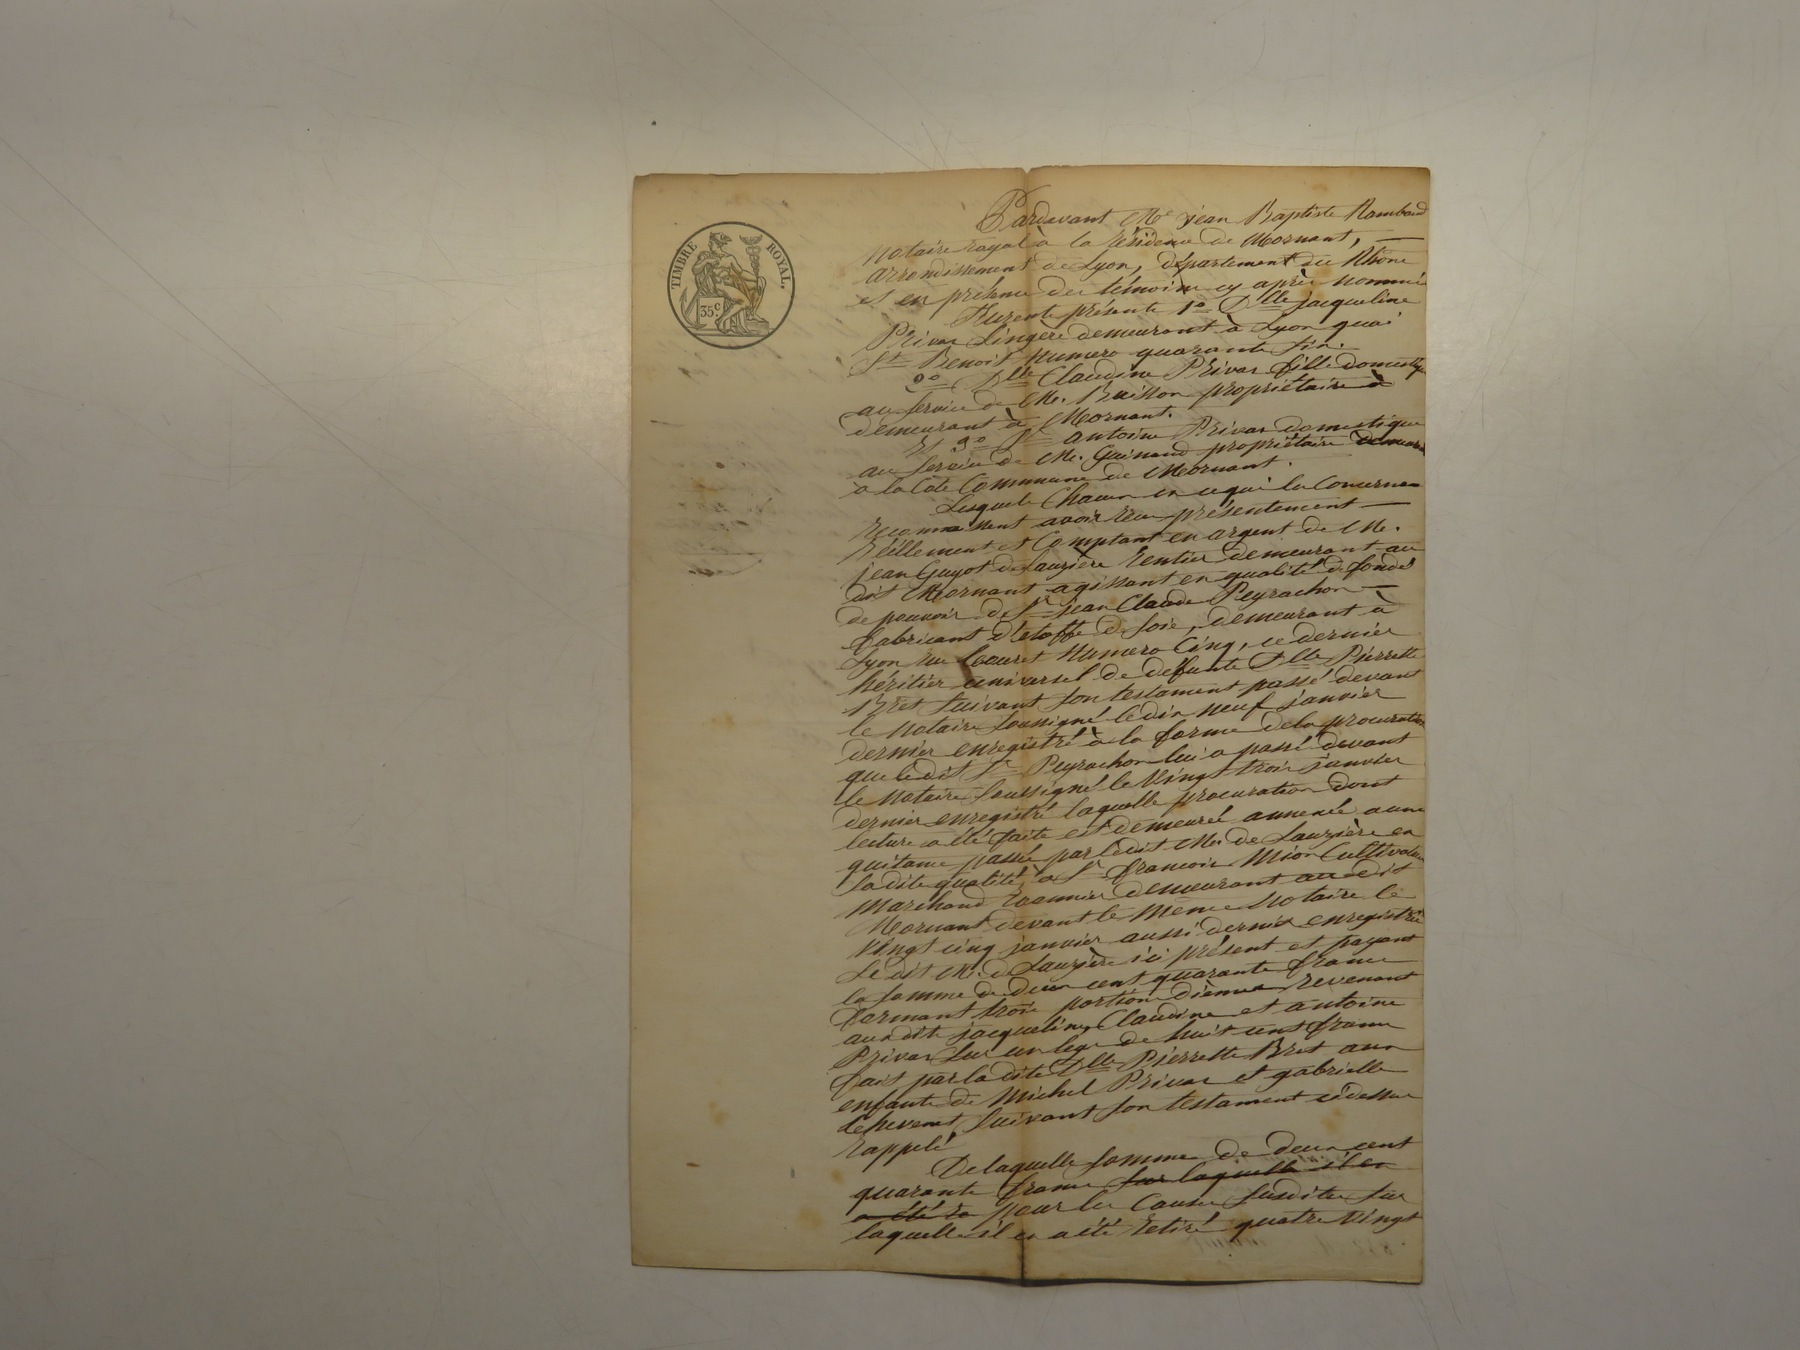 TIMBRE ROYAL.
35c.
Pardevant Me jean Baptiste Rambaud
Notaire royal à la résidence de Mornant,
arrondissement de Lyon, département du Rhône
et en présence des témoins cy après nommés
Furent présents 1o Dlle jacqueline
Privas Lingère demeurant à Lyon quai
St Benoit Numero quarante six.
2o Dlle Claudine Privas fille domestique
au service de Mr. Buisson propriétaire à
demeurant à Mornant.
Et 3o Sr antoine Privas domestique
au service de Mr. Guinand propriétaire
à la Côte Commune de Mornant.
Lesquels Chacun en ce qui les Concerne
reconnaissent avoir reçu présentement
réellement et Comptant en argent de Mr.
jean Guyot de Lauzière rentier demeurant au
dit Mornant agissant en qualité de fondé
de pouvoir de Sr jean Claude Peyrachon
fabricant d'étoffe de soie, demeurant à
Lyon rue Numero Cinq, ce dernier
héritier universel de défunte Dlle Pierrette
Bret suivant son testament passé devant
le Notaire soussigné le dix neuf janvier
dernier enregistré à la forme de la procuration
que le dit Sr Peyrachon lui a passé devant
le Notaire soussigné le Vingt trois janvier
dernier enregistré laquelle procuration dont
lecture a été faite est demeurée annexée à une
quitance passée par le dit Mr. de Lauzière en
la dite qualité à Sr francois Mion Cultivateur
Marchand demeurant au dit
Mornant devant le Même Notaire le
Vingt cinq janvier aussi dernier enregistrée
Le dit Mr. de Lauzière ici présent et payant
la somme de deux cent quarante francs
formant trois portions revenant
aux dits jacqueline, Claudine et antoine
Privas sur un legs de huit cents francs
fait par la dite Dlle Pierrette Bret aux
enfants de Michel Privas et gabrielle
suivant son testament ci dessus
rappelé
De laquelle somme de deux cent
quarante francs sur laquelle il en
a été pour les Causes susdites sur
laquelle il en a été retiré quatre Vingt